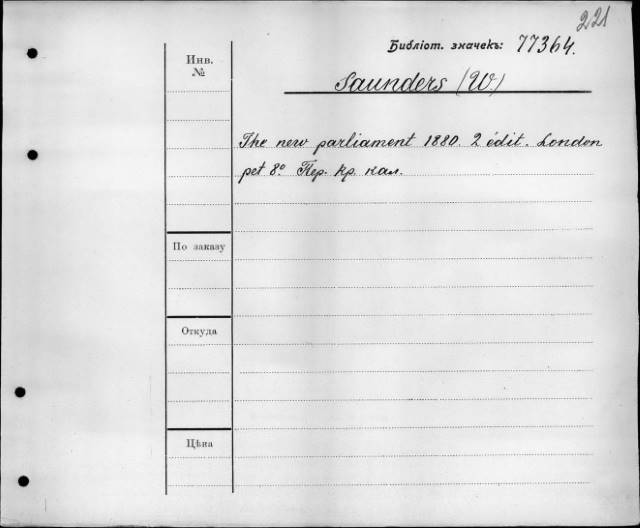 221
Библіот. значекъ: 77364.
Инв. №
Saunders (W.)
The new parliament 1880. 2 édit. London
pet 8º Пер. кр. кал.
По заказу
Откуда
Цѣна